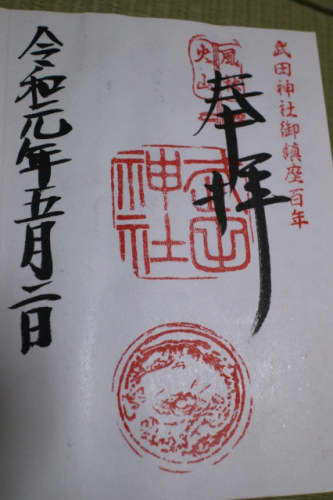 武田神社御鎮座百年
奉拝
武田神社
令和元年五月二日